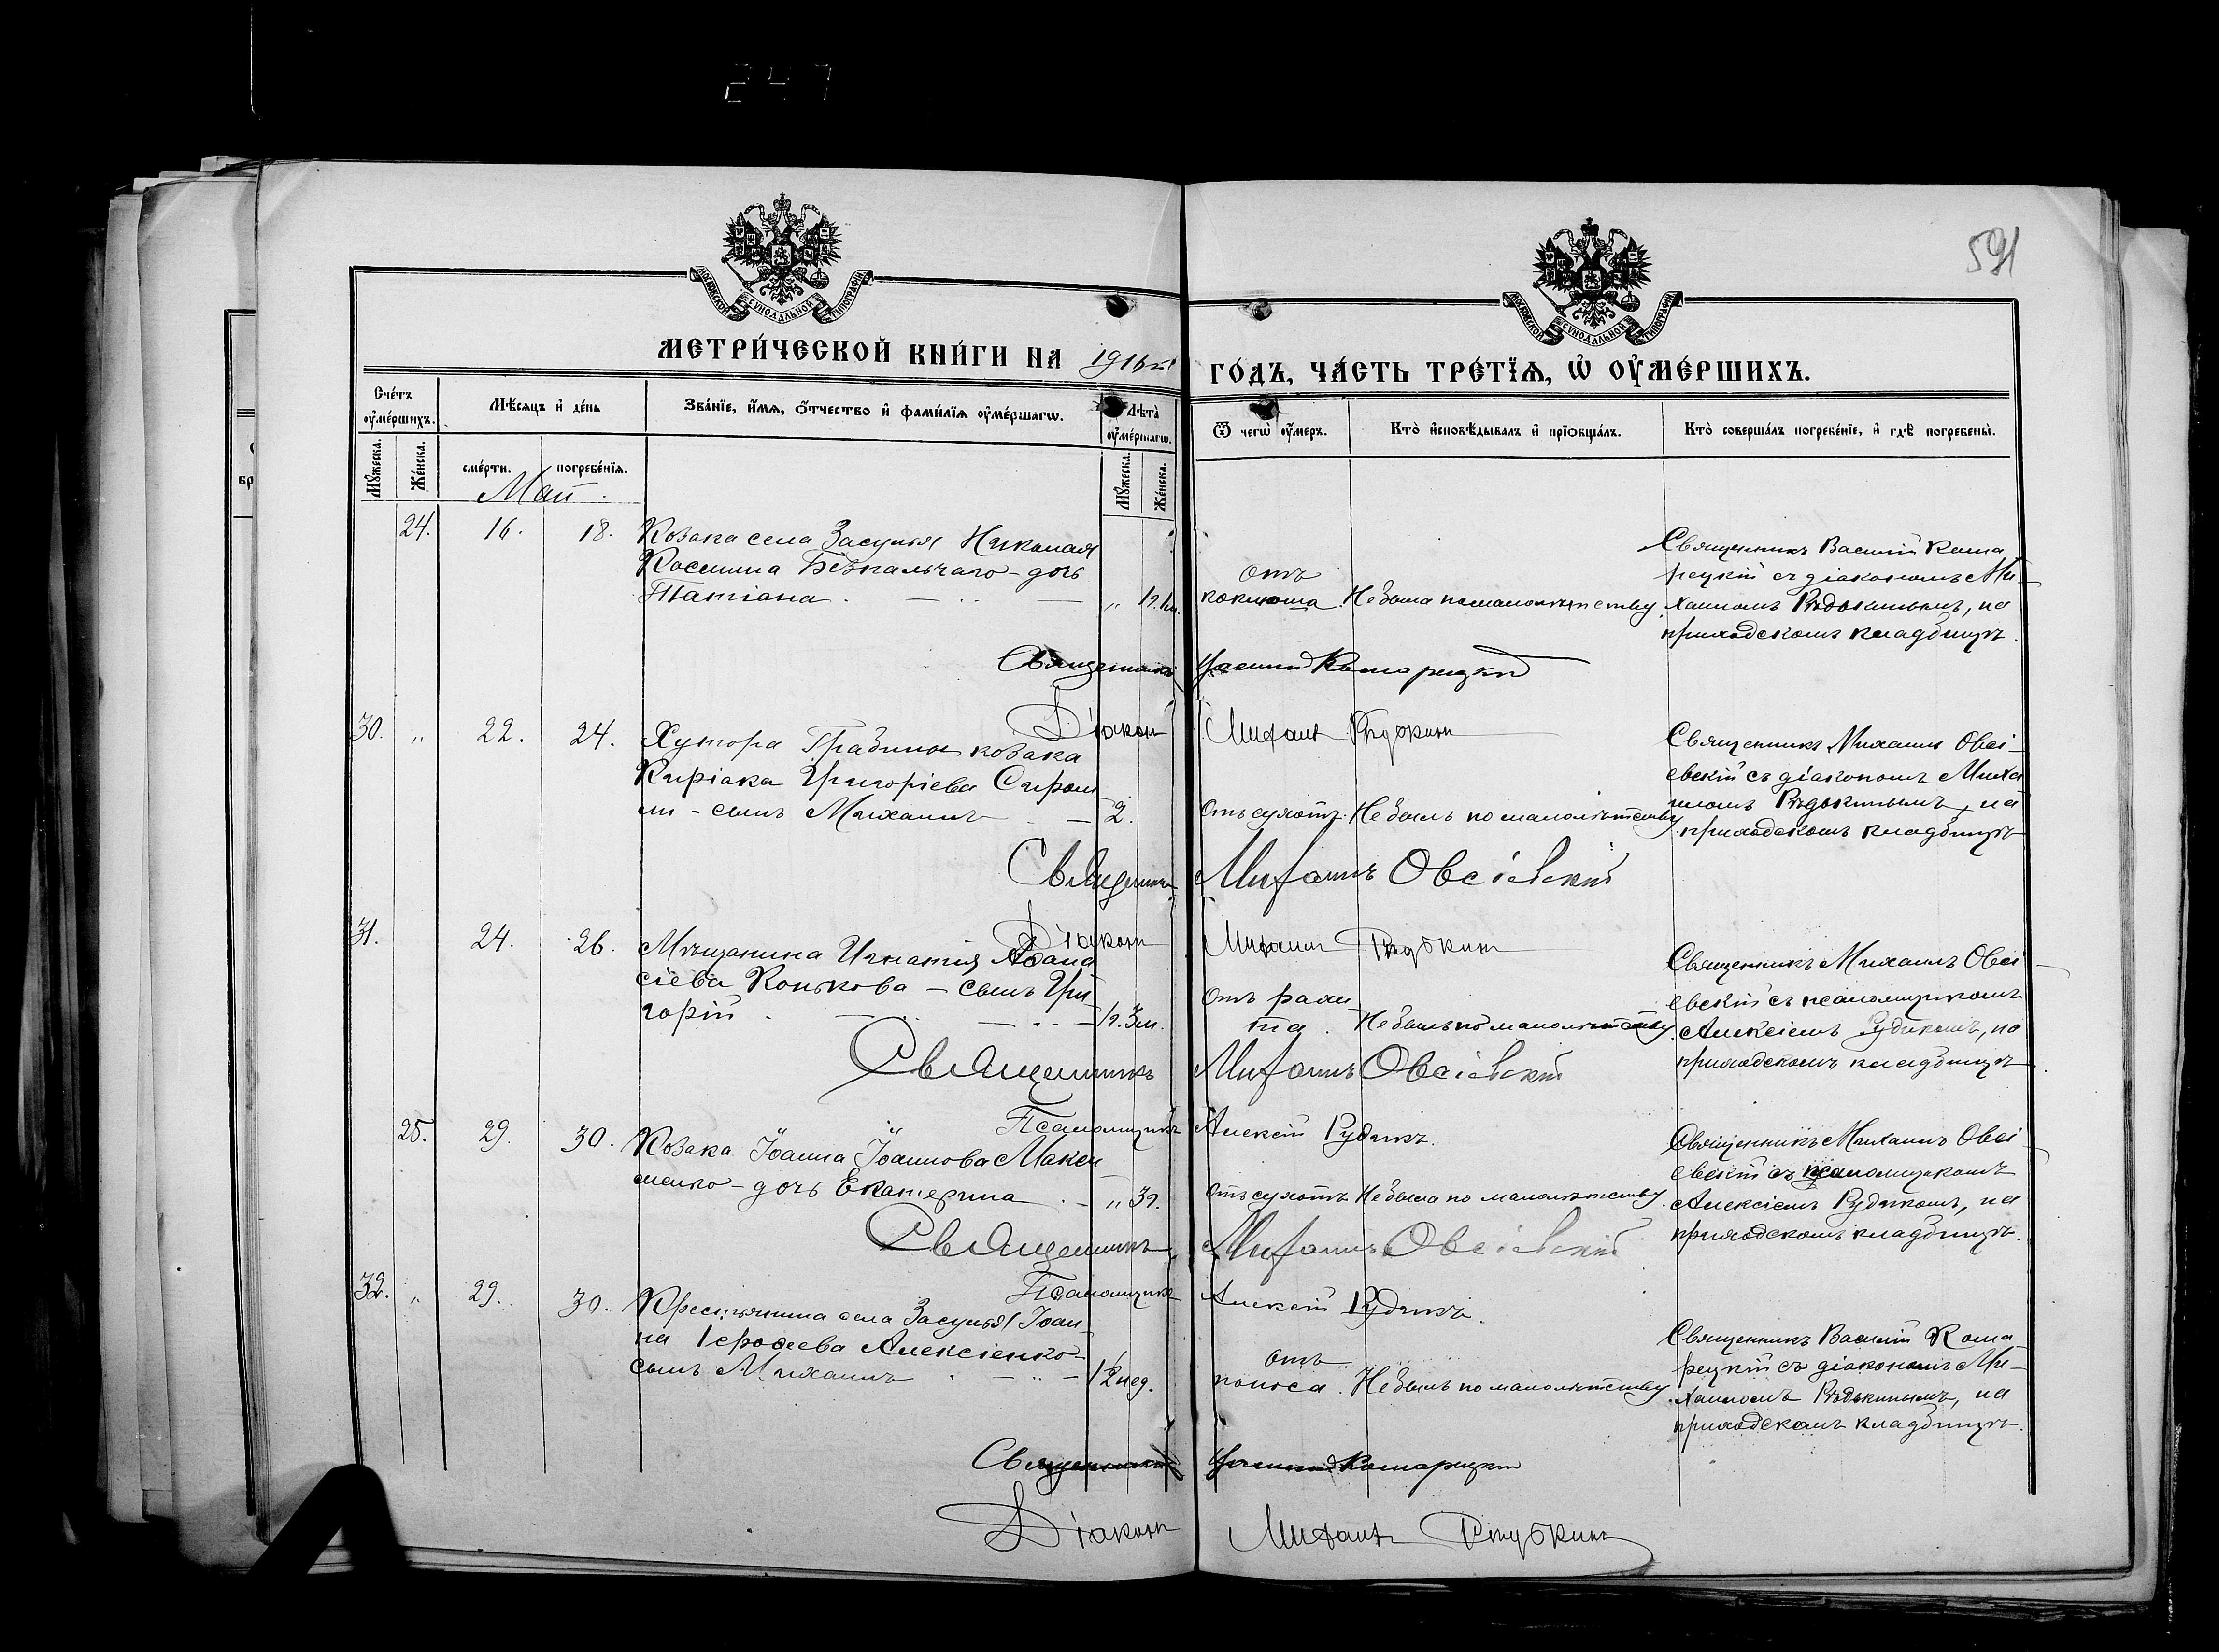 247
591
МОСКОВСКОЙ СѴНОДАЛЬНОЙ ТИПОГРАФІИ
МОСКОВСКОЙ СѴНОДАЛЬНОЙ ТИПОГРАФІИ
МЕТРИ́ЧЕСКОЙ КНИ́ГИ НА 1916й
ГО́ДЪ, ЧА́СТЬ ТРЕ́ТЇѦ, Ѡ҆ ОУ҆МЕ́РШИХЪ.
Сче́тъ оу҆ме́ршихъ.
Мѣ́сяцъ и҆ де́нь
Зва́нїе, и҆́мѧ, ѻ҆́тчество и҆ фами́лїѧ оу҆ме́ршагѡ.
Лѣта̀ оу҆ме́ршагѡ.
Ѿ чегѡ̀ оу҆́меръ.
Кто̀ и҆сповѣ́дывалъ и҆ прїѡбща́лъ.
Кто̀ соверша́лъ погребе́нїе, и҆ гдѣ̀ погребены̀.
Мꙋ́жеска.
Же́нска.
сме́рти.
погребе́нїѧ.
Мꙋ́жеска.
Же́нска.
Май.
24. 16. 18. Козака села Засулья Николая
Космина Безпальчаго - дочь
Татіана. „ 1г. 1м.
отъ
коклюша. Не была по малолѣтству.
Священникъ Василій Кома
рецкій съ діакономъ Ми-
хаиломъ Рѣдькинымъ, на
приходскомъ кладбищѣ.
Священникъ Василій Комарецкій
Діаконъ Михаилъ Рѣдькинъ
30. „ 22. 24. Хутора Грабины козака
Киріака Григоріева Сиром
ли - сынъ Михаилъ 2.
Отъ сухотъ. Не былъ по малолѣтству.
Священникъ Михаилъ Овсі-
евскій съ діакономъ Миха
иломъ Рѣдькинымъ, на
приходскомъ кладбищѣ
Священникъ Михаилъ Овсіевскій
Діаконъ Михаилъ Рѣдькинъ
31. 24. 26. Мѣщанина Игнатія Аѳана
сіева Конькова - сынъ Гри
горій. 1г. 3м.
Отъ рахи
та. Не былъ по малолѣтству.
Священникъ Михаилъ Овсі
евскій съ псаломщикомъ
Алексіемъ Рудикомъ, на
приходскомъ кладбищѣ.
Священникъ Михаилъ Овсіевскій
Псаломщикъ Алексій Рудикъ.
25. 29. 30. Козака Іоанна Іоаннова Макси
менко - дочь Екатерина. „ 3г.
Отъ сухотъ Не была по малолѣтству.
Священникъ Михаилъ Овсі
евскій съ псаломщикомъ
Алексіемъ Рудикомъ, на
приходскомъ кладбищѣ.
Священникъ Михаилъ Овсіевскій
Псаломщикъ Алексій Рудикъ.
32. „ 29. 30. Крестьянина села Засулья Іоан-
на Іероѳеева Алексіенко-
сынъ Михаилъ
отъ
поноса. Не былъ по малолѣтству
Священникъ Василій Кома
рецкій съ діакономъ Ми-
хаиломъ Рѣдькинымъ, на
приходскомъ кладбищѣ.
Священникъ Василій Комарецкій
Діаконъ Михаилъ Рѣдькинъ